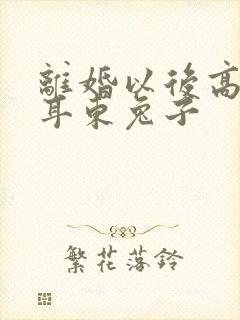 離婚以後高
耳東兔子
繁花落鈴